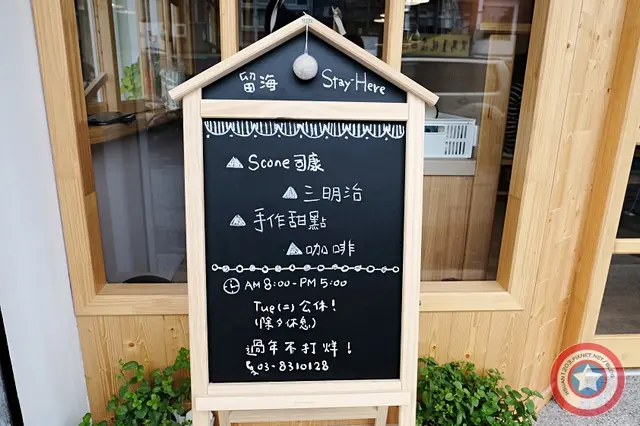 留海 Stay·Here
Scone司康
三明治
手作甜點
咖啡
AM 8:00-PM 5:00
Tue(二)公休!
(除夕休息)
過年不打烊!
03-8310128